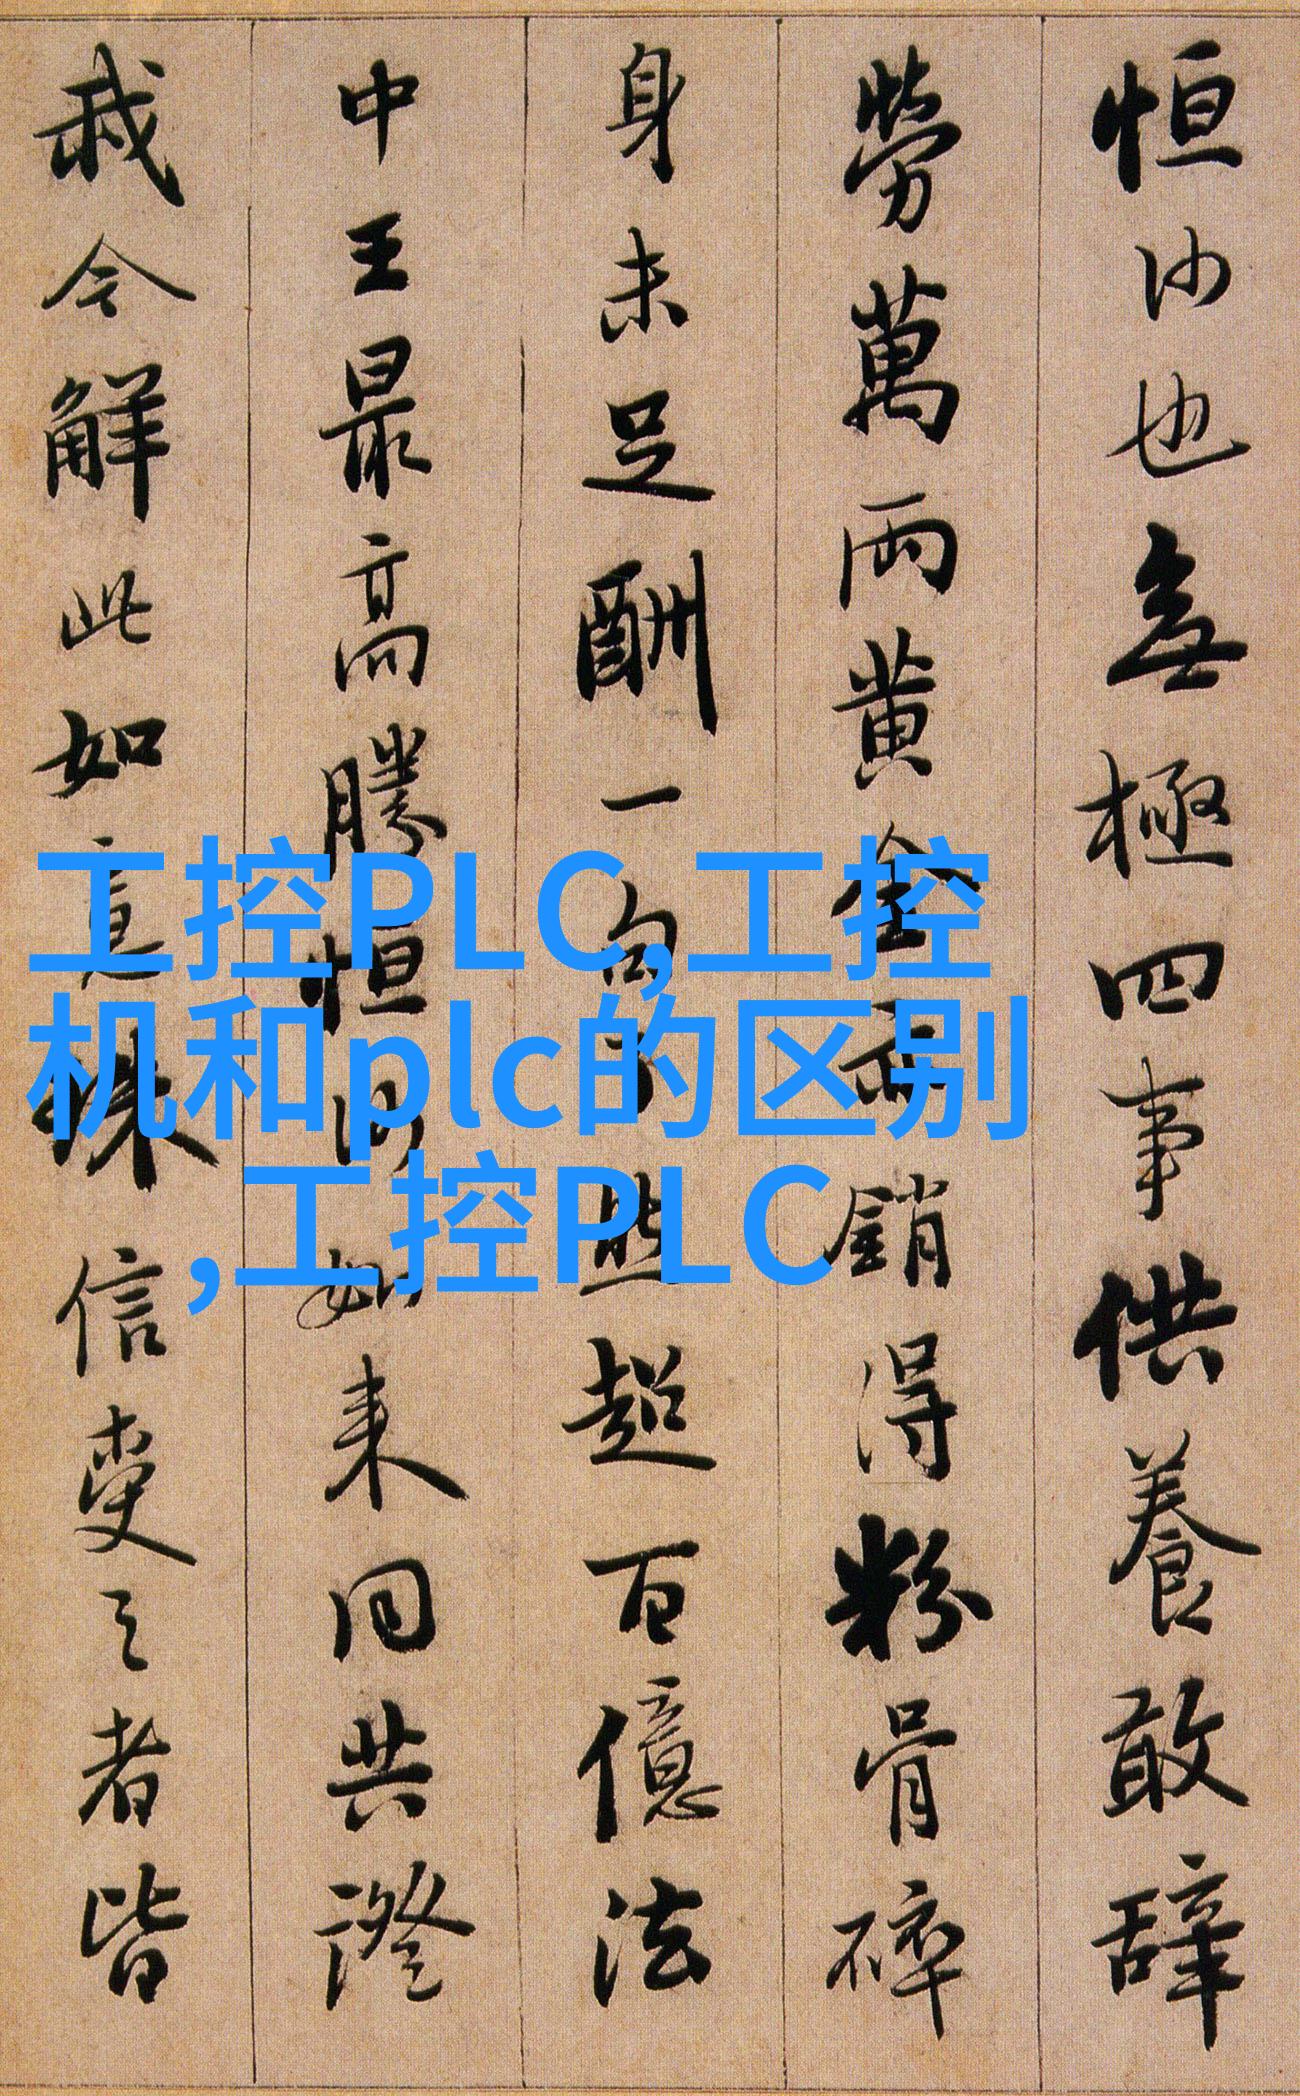 恒沙也無極四事供養敢辞
勞萬兩黄金亦銷得粉骨碎
身未足酬一句了然超百億法
中王最高勝恒沙如来同共證
我今解此如意珠信受之者皆
工控PLC,工控
机和plc的区别
,工控PLC